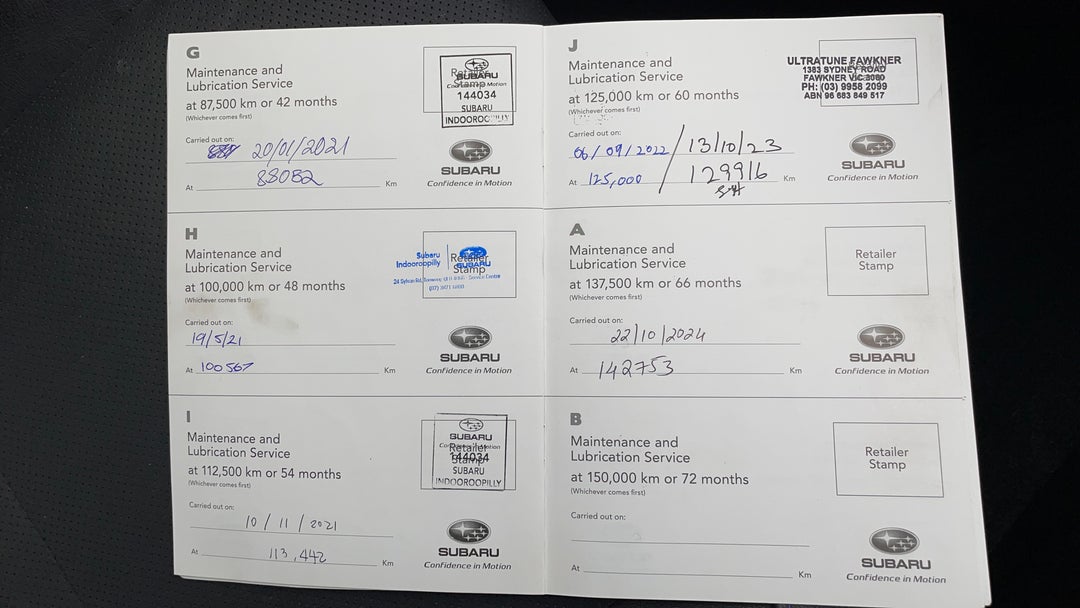 G
Maintenance and
Lubrication Service
at 87,500 km or 42 months
(Whichever comes first)
Retailer
Stamp
SUBARU
Confidence in Motion
144034
SUBARU
INDOOROOPILLY
Carried out on:
20/01/2021
At 88082 Km
SUBARU
Confidence in Motion
H
Maintenance and
Lubrication Service
at 100,000 km or 48 months
(Whichever comes first)
Retailer
Stamp
Subaru
Indooroopilly
SUBARU
Carried out on:
19/5/21
At 100567 Km
SUBARU
Confidence in Motion
I
Maintenance and
Lubrication Service
at 112,500 km or 54 months
(Whichever comes first)
Retailer
Stamp
SUBARU
Confidence in Motion
144034
SUBARU
INDOOROOPILLY
Carried out on:
10/11/2021
At 113,442 Km
SUBARU
Confidence in Motion
J
Maintenance and
Lubrication Service
at 125,000 km or 60 months
(Whichever comes first)
ULTRATUNE FAWKNER
1383 SYDNEY ROAD
FAWKNER VIC 3060
PH: (03) 9958 2099
ABN 96 683 849 517
Carried out on:
06/09/2022 / 13/10/23
At 125,000 / 129916 Km
SUBARU
Confidence in Motion
A
Maintenance and
Lubrication Service
at 137,500 km or 66 months
(Whichever comes first)
Retailer
Stamp
Carried out on:
22/10/2024
At 142753 Km
SUBARU
Confidence in Motion
B
Maintenance and
Lubrication Service
at 150,000 km or 72 months
(Whichever comes first)
Retailer
Stamp
Carried out on:
At Km
SUBARU
Confidence in Motion